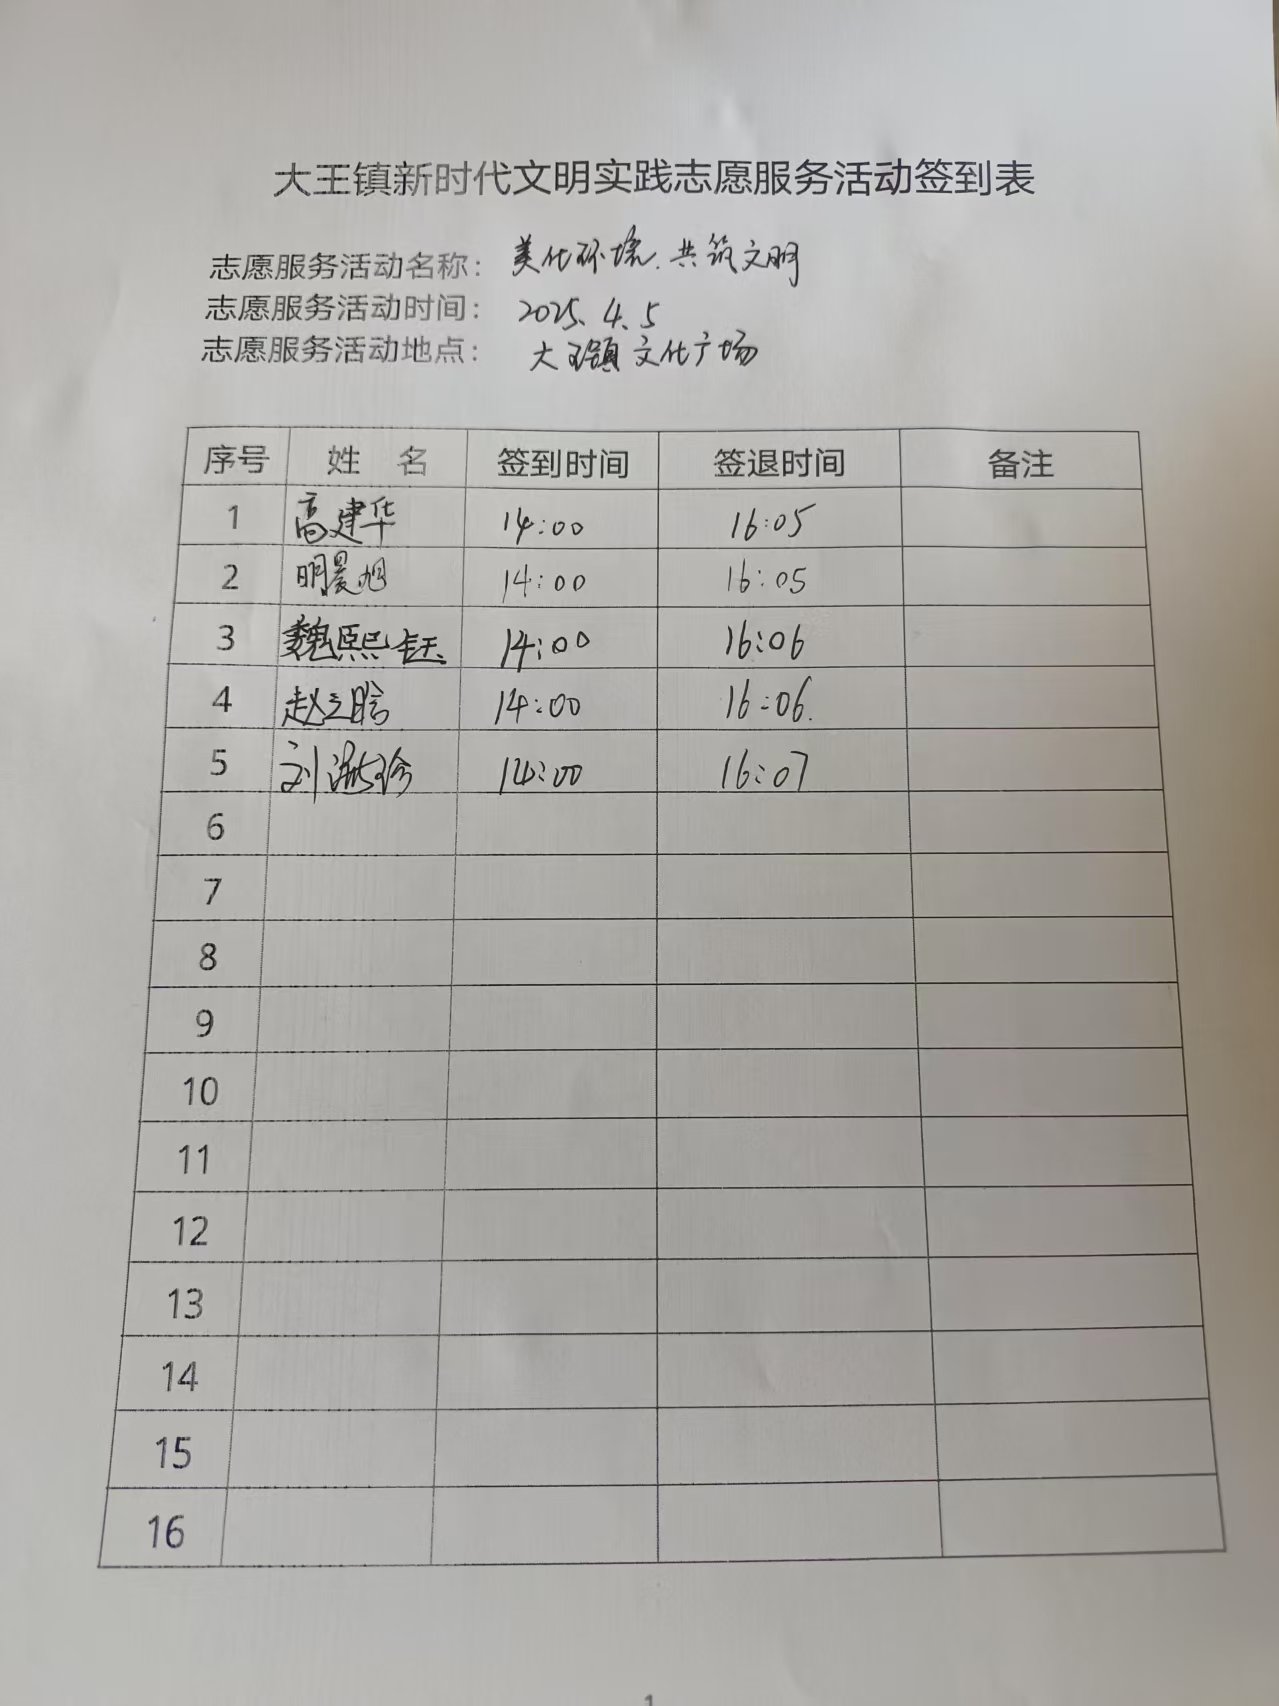 大王镇新时代文明实践志愿服务活动签到表
志愿服务活动名称：美化环境.共筑文明
志愿服务活动时间：2025.4.5
志愿服务活动地点：大王镇文化广场
序号 姓 名 签到时间 签退时间 备注
1 高建华 14:00 16:05
2 明晨旭 14:00 16:05
3 魏熙钰 14:00 16:06
4 赵立晗 14:00 16:06.
5 刘 14:00 16:07
6
7
8
9
10
11
12
13
14
15
16
1